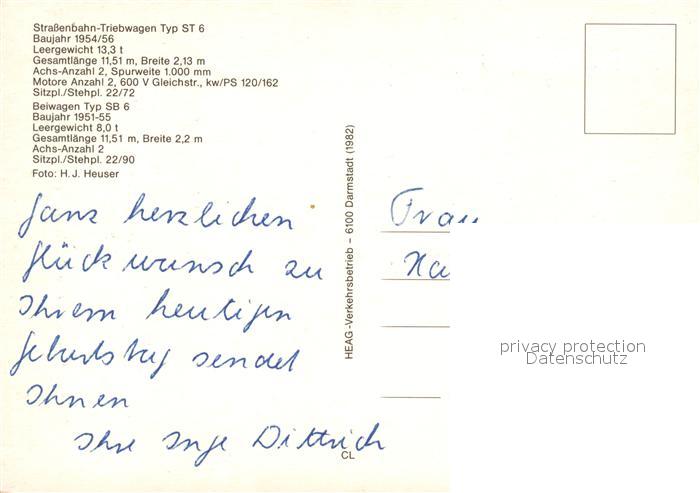 Straßenbahn-Triebwagen Typ ST 6
Baujahr 1954/56
Leergewicht 13,3 t
Gesamtlänge 11,51 m, Breite 2,13 m
Achs-Anzahl 2, Spurweite 1.000 mm
Motore Anzahl 2, 600 V Gleichstr., kw/PS 120/162
Sitzpl./Stehpl. 22/72
Beiwagen Typ SB 6
Baujahr 1951-55
Leergewicht 8,0 t
Gesamtlänge 11,51 m, Breite 2,2 m
Achs-Anzahl 2
Sitzpl./Stehpl. 22/90
Foto: H. J. Heuser
Ganz herzlichen
Glückwunsch zu
Ihrem heutigen
Geburtstag sendet
Ihnen
Ihre Inge Dittrich
HEAG-Verkehrsbetrieb – 6100 Darmstadt (1982)
CL
Frau
Ha
privacy protection
Datenschutz